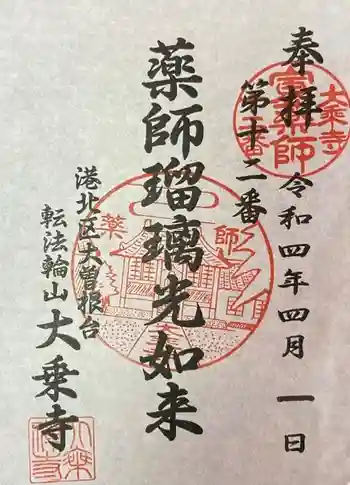 奉拝
令和四年四月一日
第十二番
薬師瑠璃光如来
港北区大曽根台
転法輪山
大乗寺
薬師
大乗寺